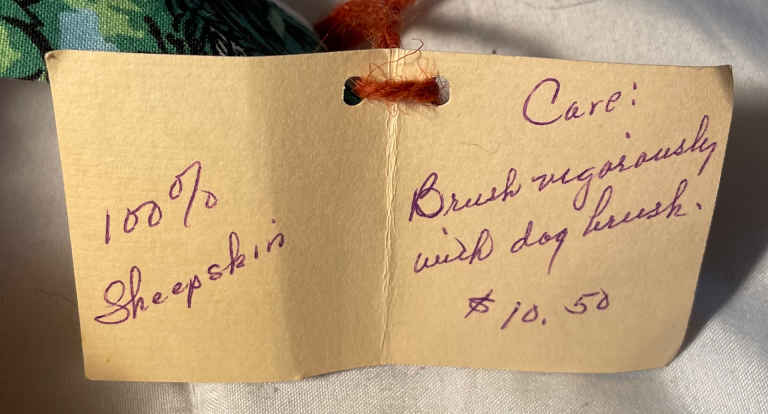 100%
Sheepskin
Care:
Brush vigorously
with dog brush.
$10.50